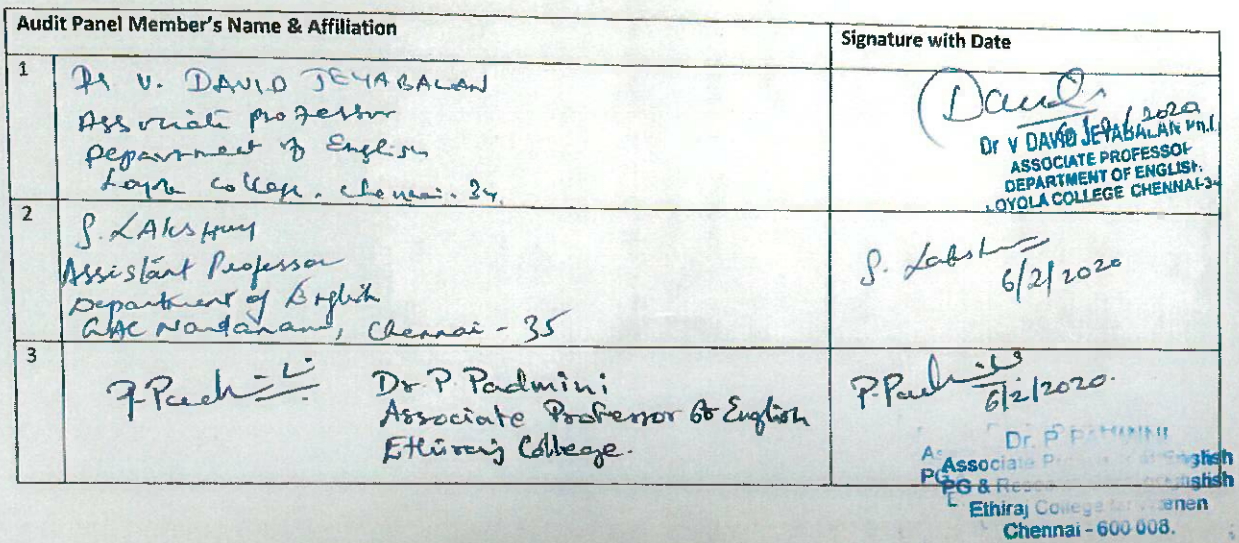 Audit Panel Member's Name & Affiliation
Signature with Date
1
Dr V. DAVID JEYABALAN
Associate professor
Department of English
Loyola college, Chennai - 34.
6/2/2020
Dr V DAVID JEYABALAN
ASSOCIATE PROFESSOR
DEPARTMENT OF ENGLISH
LOYOLA COLLEGE CHENNAI-34
2
S. LAKSHMY
Assistant Professor
Department of English
GAC Nandanam, Chennai - 35
S. Lakshmy
6/2/2020
3
Dr P. Padmini
Associate Professor of English
Ethiraj College.
6/2/2020.
Dr. P
Associate English
PG & English
Ethiraj College
Chennai - 600 008.